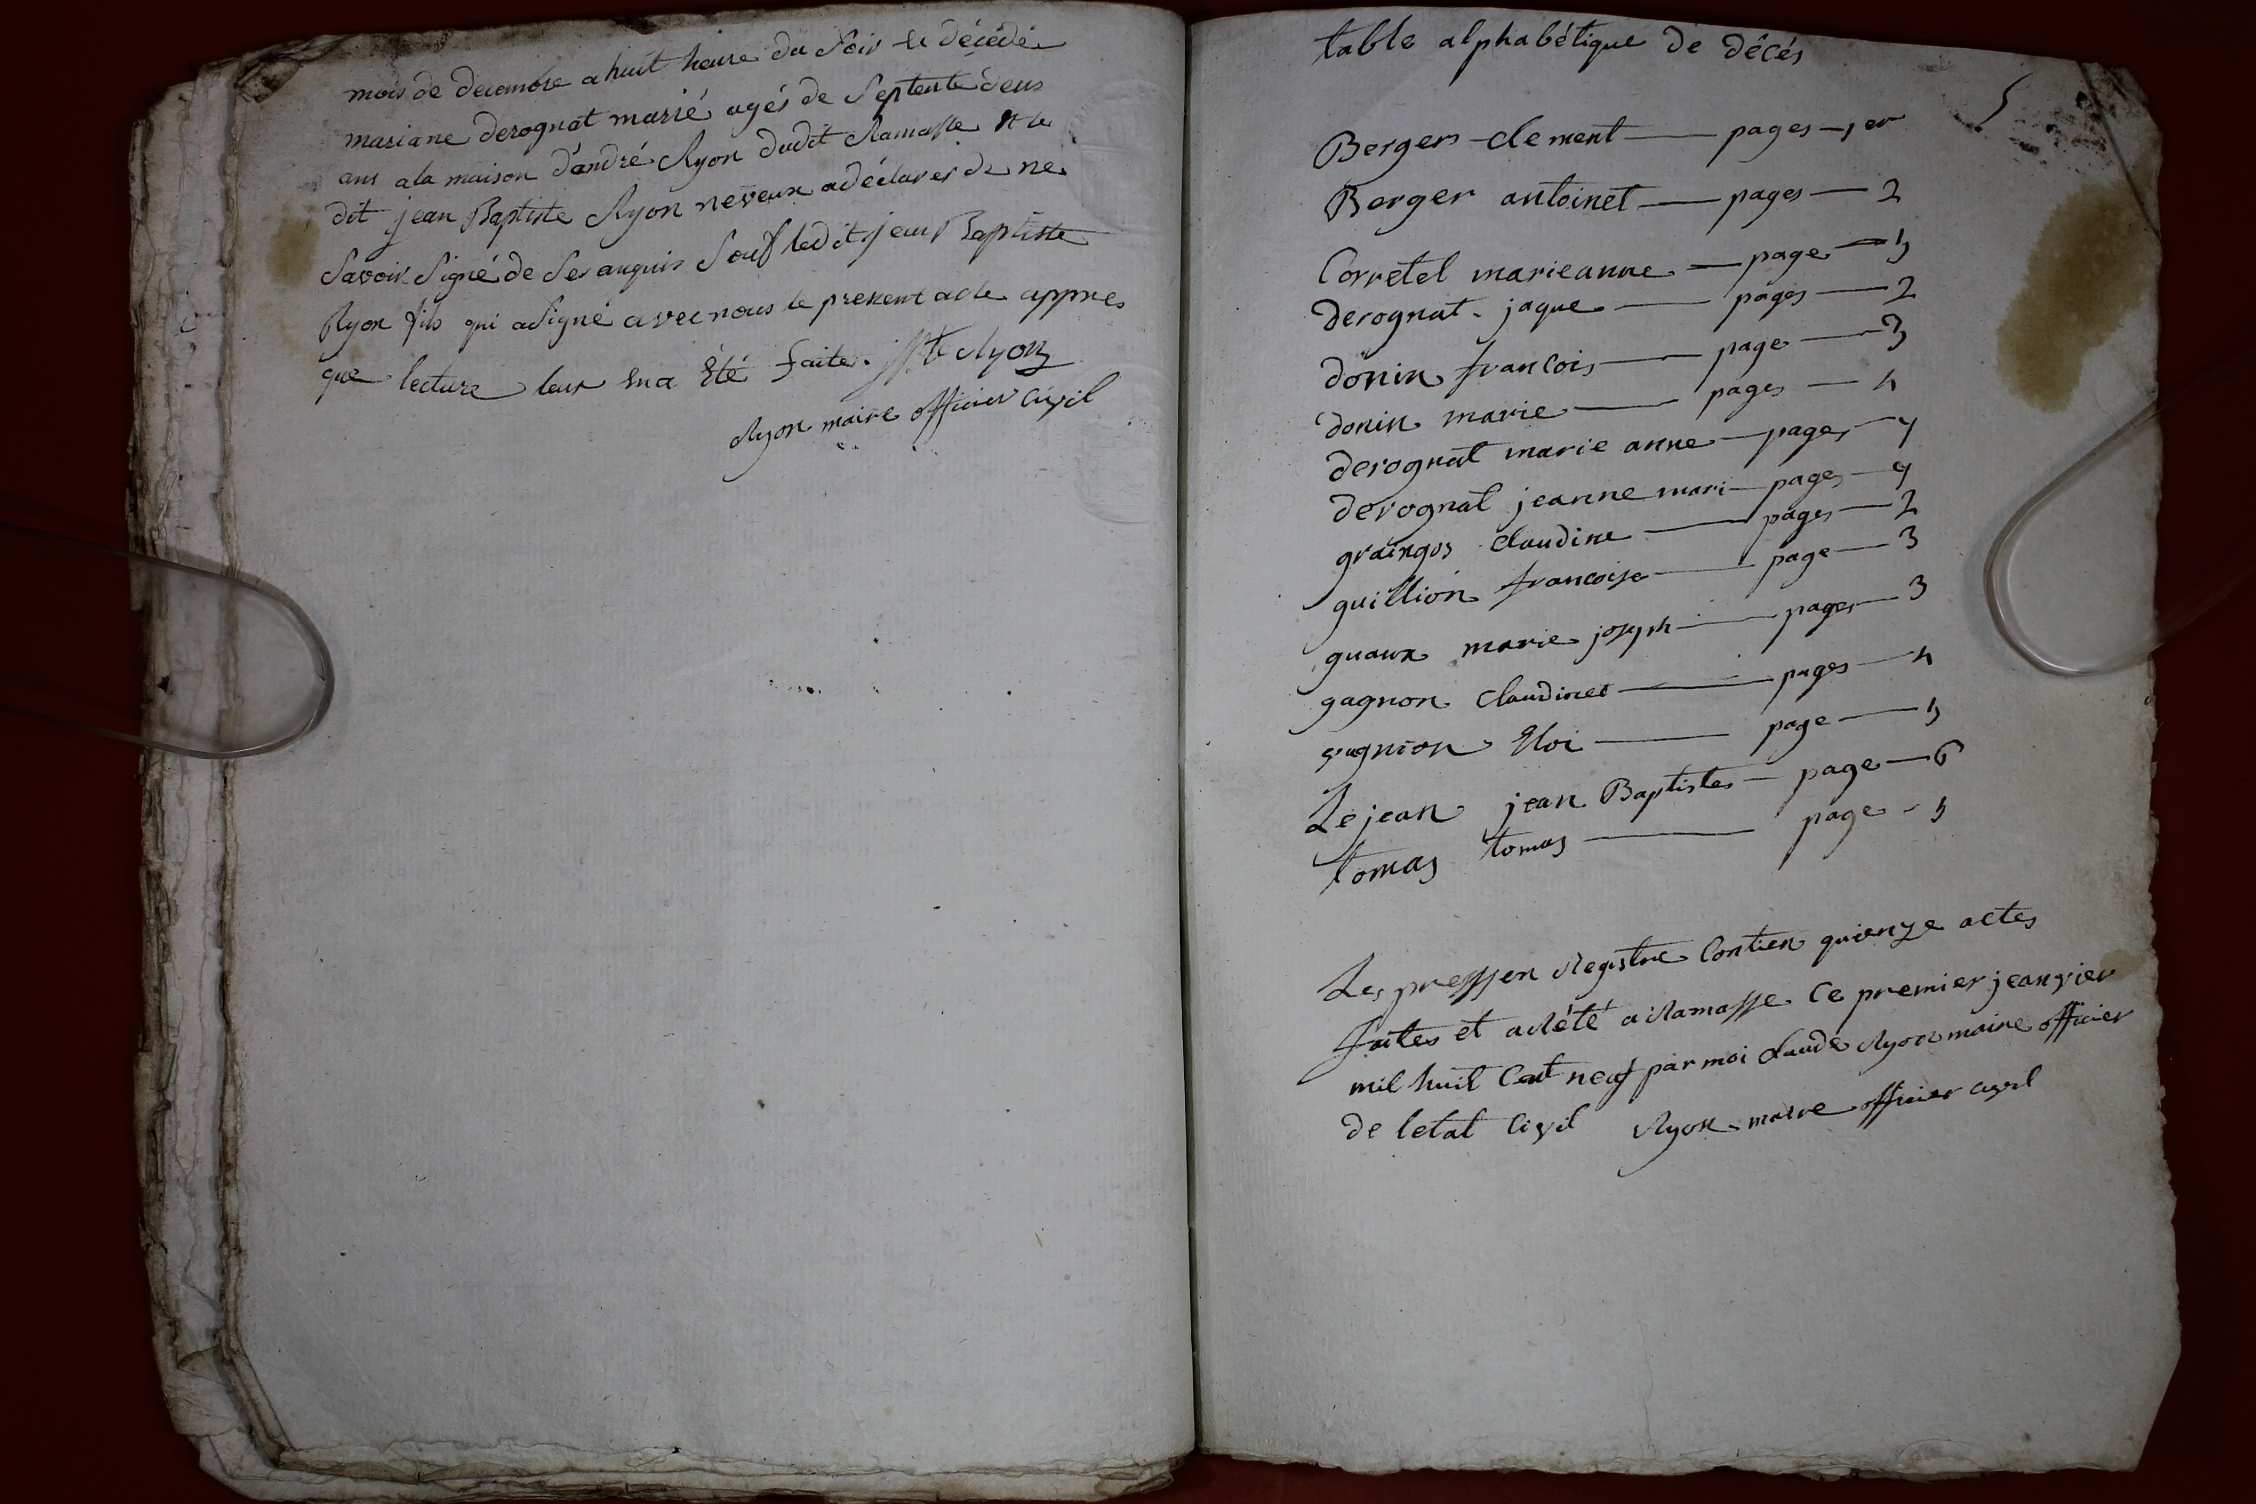 mois de decembre a huit heure du soir et décédé
mariane derognat marié agés de septente deus
ans a la maison d'andré Ryon dudit Ramasse et le
dit jean Baptiste Ryon neveux a déclarer de ne
savoir signé de ses anquis sauf ledit jean Baptiste
Ryon fils qui a signé avec nous le present acte appres
que lecture leur en a été faite. jpte Ryon
Ryon maire officier civil
table alphabétique de décés
5
Bergers clement — pages — 1er
Berger antoinet — pages — 2
Corretel marieanne — page — 5
derognat jaque — pages — 2
donin francois — page — 3
donin marie — pages — 4
derognat marie anne — pages — 7
derognat jeanne mari — pages — 4
graingos claudine — pages — 2
guillion francoise — page — 3
guaux marie joseph — pages — 3
gagnon claudinet — pages — 4
gagnion Eloi — page — 5
Le jean jean Baptistes — page — 6
tomas tomas — page - 5
Les pressen Registre Contien quienze actes
faites et a Rété a Ramasse ce premier jeanvier
mil huit Cent neuf par moi claude Ryon maire officier
de letat Civil Ryon maire officier civil